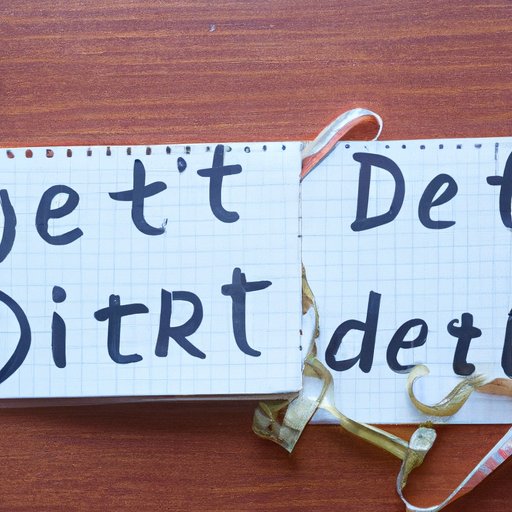 yet't
DitRt
Det
deti